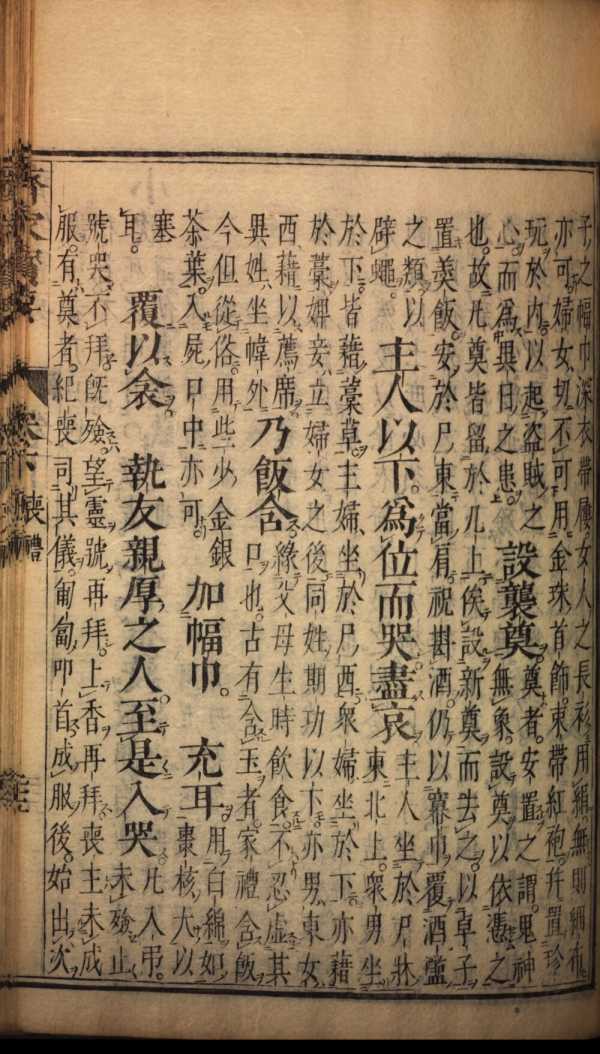 子之幅巾深衣帶履女人之長衫用絹無則綿布
亦可婦女切不可用金珠首飾束帶紅砲幷置珍
玩於內以起盜賊之
心而爲異日之患
設襲奠
奠者安置之謂鬼神
無象設奠以依憑之
也故凡奠皆留於几上俟設新奠而去之以卓子
置羹飯安於尸東當肩祝斟酒仍以冪巾覆酒盞
之類以
辟蠅
主人以下爲位而哭盡哀
主人坐於尸牀
東北上衆男坐
於下皆藉藁草主婦坐於尸西衆婦坐於下亦藉
於藁婢妾立婦女之後同姓期功以下亦男東女
西藉以薦席
異姓坐幃外
乃飯含
緣父母生時飲食不忍虛其
口也古有含玉者家禮含飯
今但從俗用些少金銀
茶葉入屍口中亦可
加幅巾
充耳
用白綿如
棗核大以
塞
耳
覆以衾
執友親厚之人至是入哭
凡入弔
未殮止
號哭不拜旣殮望靈號再拜上香再拜喪主未成
服有奠者紀喪司其儀匍匐叩首成服後始出次
卷下
喪禮